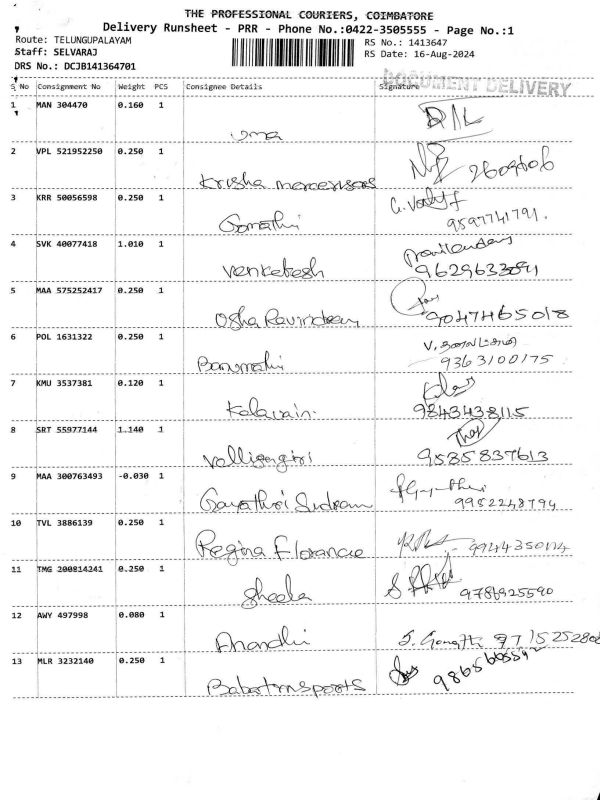 THE PROFESSIONAL COURIERS, COIMBATORE
Delivery Runsheet - PRR - Phone No.:0422-3505555 - Page No.:1
Route: TELUNGUPALAYAM RS No.: 1413647
Staff: SELVARAJ RS Date: 16-Aug-2024
DRS No.: DCJB141364701
DOCUMENT DELIVERY
S No Consignment No Weight PCS Consignee Details Signature
1 MAN 304470 0.160 1
uma
2 VPL 521952250 0.250 1
Krisha mercerisers
3 KRR 50056598 0.250 1
Gomathi 9597741791.
4 SVK 40077418 1.010 1
Venketesh 9629633091
5 MAA 575252417 0.250 1
Osha Ravindran 9047465018
6 POL 1631322 0.250 1
Banumathi 9363100175
7 KMU 3537381 0.120 1
Kalavain. 9843438115
8 SRT 55977144 1.140 1
Valliyangiri 9585837613
9 MAA 300763493 -0.030 1
Gayathri Sudram 9952248794
10 TVL 3886139 0.250 1
Regina Florancie 9944350114
11 TMG 200814241 0.250 1
Sheela 9786925590
12 AWY 497998 0.080 1
Anandhi 9715252808
13 MLR 3232140 0.250 1
Babatrnsports